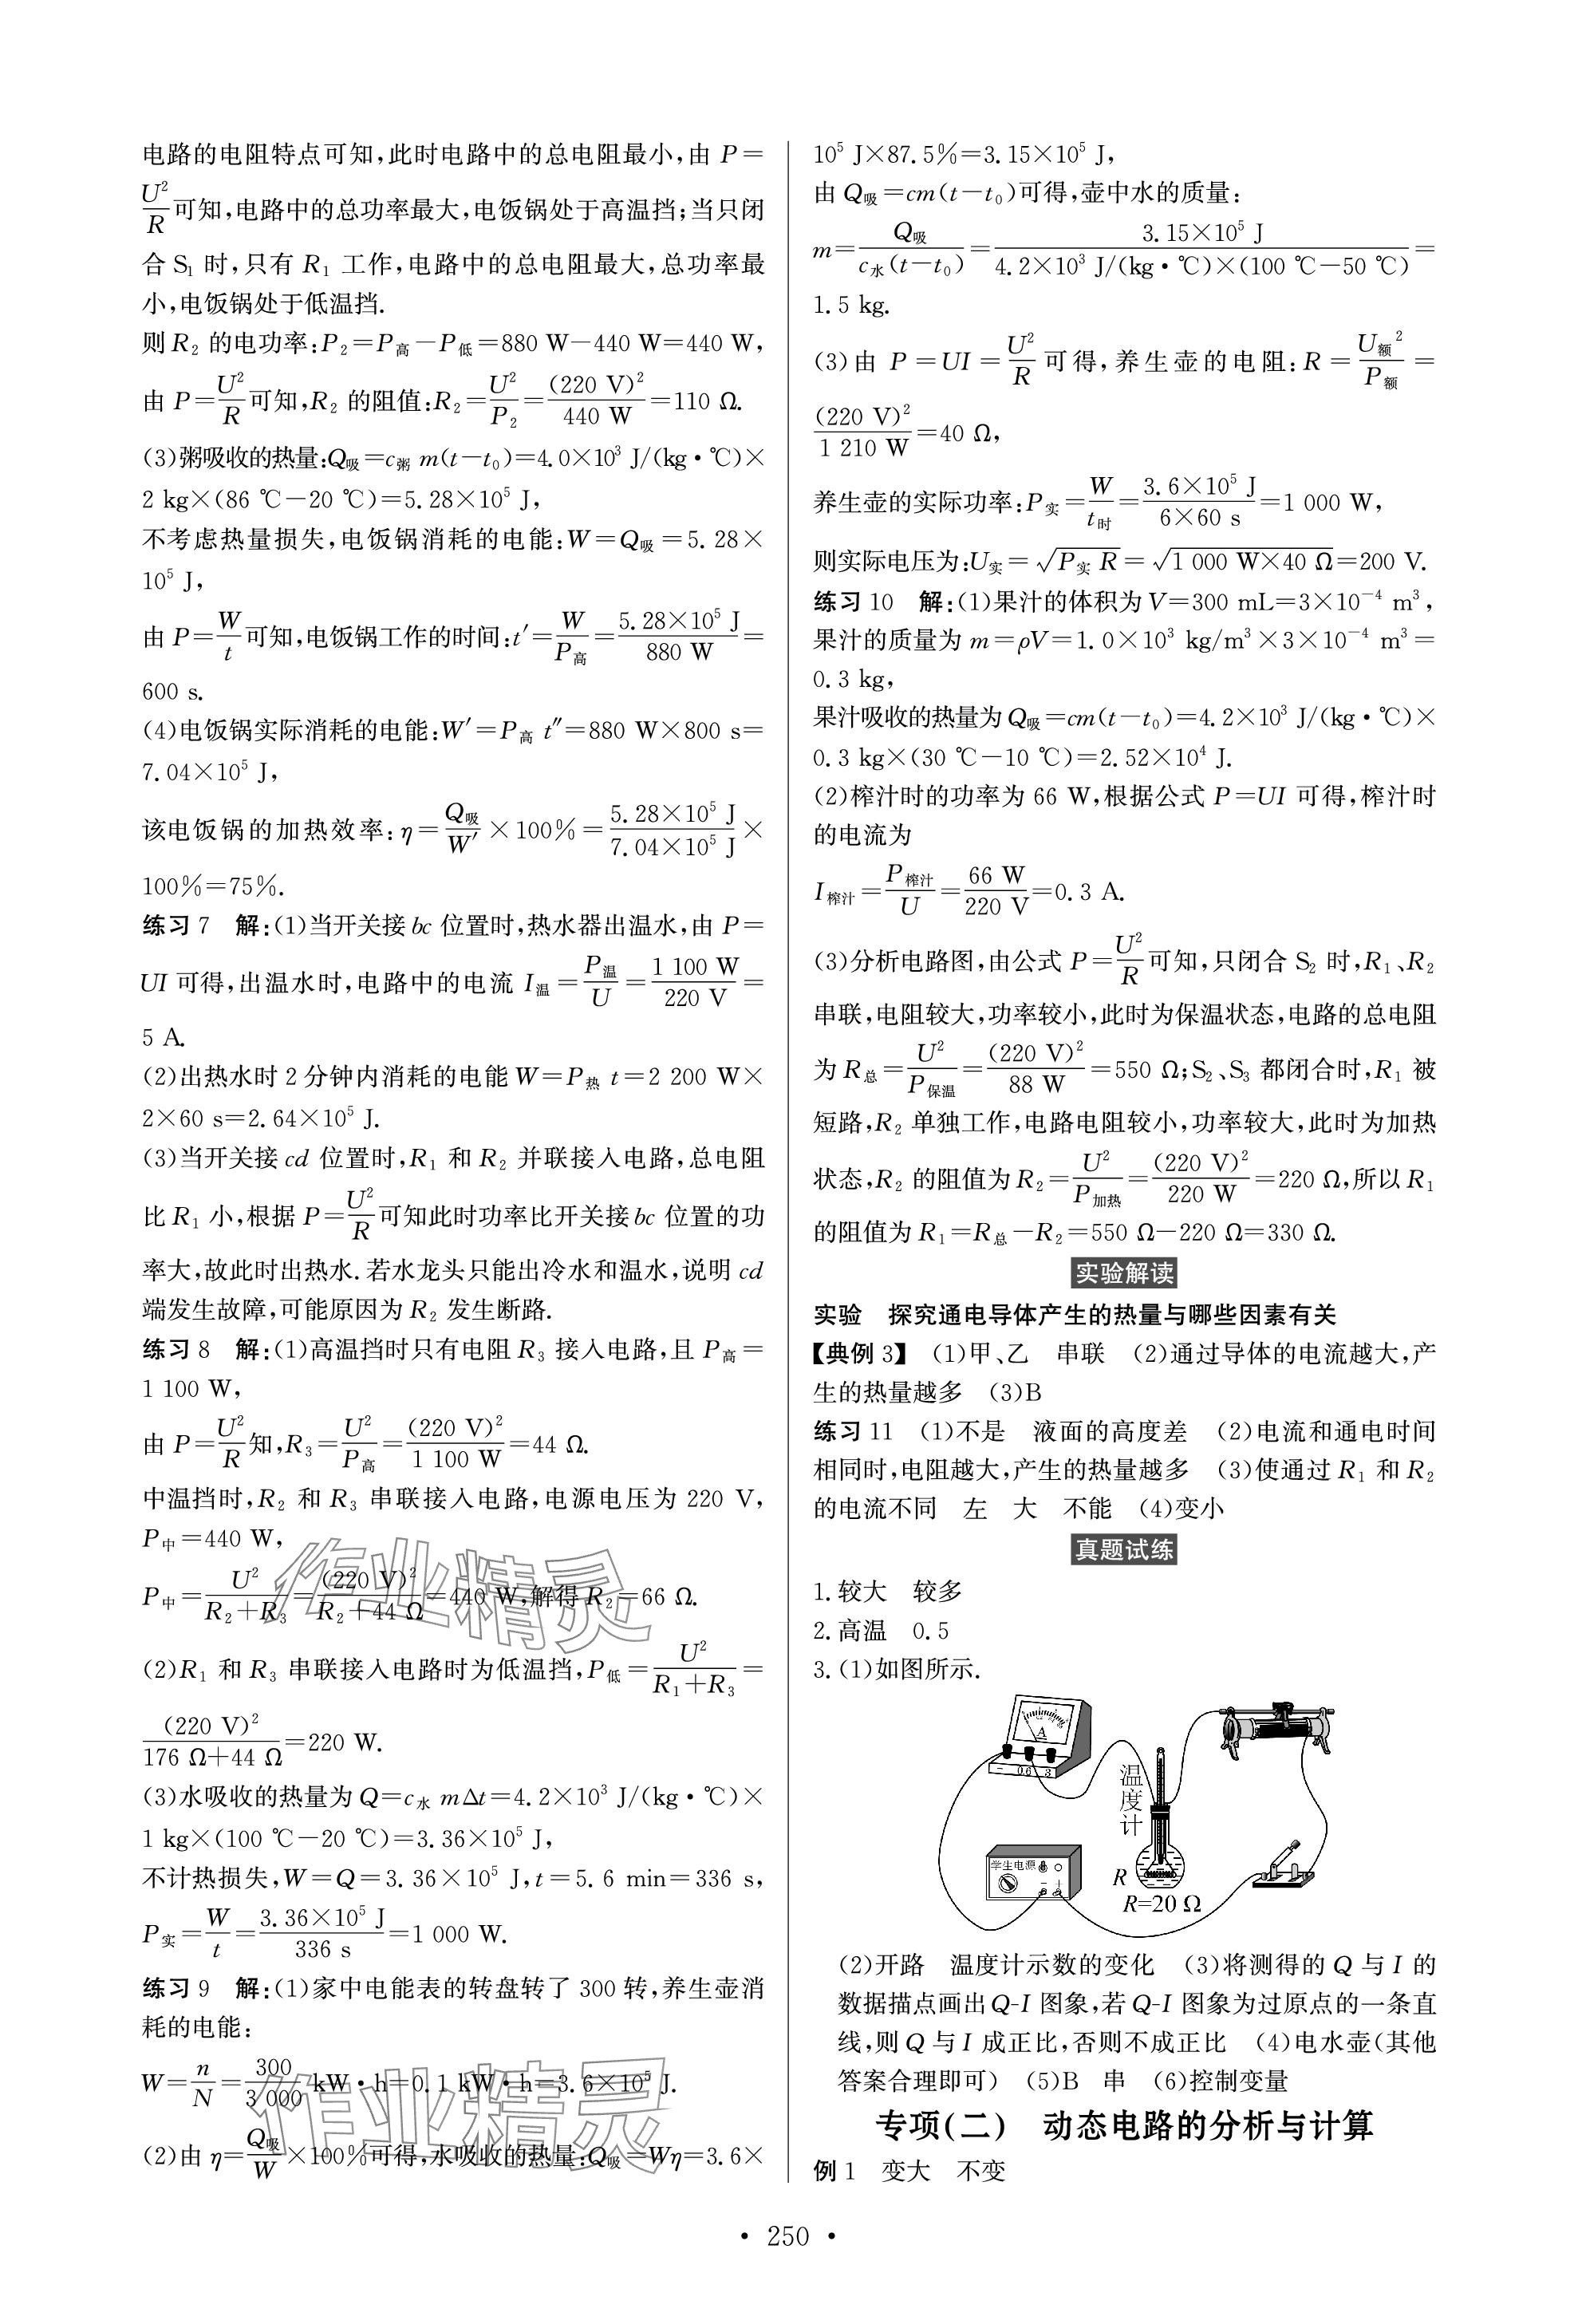 电路的电阻特点可知,此时电路中的总电阻最小,由 P=
U²/R 可知,电路中的总功率最大,电饭锅处于高温挡;当只闭
合 S₁ 时,只有 R₁ 工作,电路中的总电阻最大,总功率最
小,电饭锅处于低温挡.
则 R₂ 的电功率:P₂=P高-P低=880 W-440 W=440 W,
由 P=U²/R 可知,R₂ 的阻值:R₂=U²/P₂=(220 V)²/440 W=110 Ω.
(3)粥吸收的热量:Q吸=c粥 m(t-t₀)=4.0×10³ J/(kg·℃)×
2 kg×(86 ℃-20 ℃)=5.28×10⁵ J,
不考虑热量损失,电饭锅消耗的电能:W=Q吸=5.28×
10⁵ J,
由 P=W/t 可知,电饭锅工作的时间:t′=W/P高=5.28×10⁵ J/880 W=
600 s.
(4)电饭锅实际消耗的电能:W′=P高 t″=880 W×800 s=
7.04×10⁵ J,
该电饭锅的加热效率:η=Q吸/W′×100%=5.28×10⁵ J/7.04×10⁵ J×
100%=75%.
练习 7 解:(1)当开关接 bc 位置时,热水器出温水,由 P=
UI 可得,出温水时,电路中的电流 I温=P温/U=1 100 W/220 V=
5 A.
(2)出热水时 2 分钟内消耗的电能 W=P热 t=2 200 W×
2×60 s=2.64×10⁵ J.
(3)当开关接 cd 位置时,R₁ 和 R₂ 并联接入电路,总电阻
比 R₁ 小,根据 P=U²/R 可知此时功率比开关接 bc 位置的功
率大,故此时出热水.若水龙头只能出冷水和温水,说明 cd
端发生故障,可能原因为 R₂ 发生断路.
练习 8 解:(1)高温挡时只有电阻 R₃ 接入电路,且 P高=
1 100 W,
由 P=U²/R 知,R₃=U²/P高=(220 V)²/1 100 W=44 Ω.
中温挡时,R₂ 和 R₃ 串联接入电路,电源电压为 220 V,
P中=440 W,
P中=U²/(R₂+R₃)=(220 V)²/(R₂+44 Ω)=440 W,解得 R₂=66 Ω.
(2)R₁ 和 R₃ 串联接入电路时为低温挡,P低=U²/(R₁+R₃)=
(220 V)²/(176 Ω+44 Ω)=220 W.
(3)水吸收的热量为 Q=c水 mΔt=4.2×10³ J/(kg·℃)×
1 kg×(100 ℃-20 ℃)=3.36×10⁵ J,
不计热损失,W=Q=3.36×10⁵ J,t=5.6 min=336 s,
P实=W/t=3.36×10⁵ J/336 s=1 000 W.
练习 9 解:(1)家中电能表的转盘转了 300 转,养生壶消
耗的电能:
W=n/N=300/3 000 kW·h=0.1 kW·h=3.6×10⁵ J.
(2)由 η=Q吸/W×100%可得,水吸收的热量:Q吸=Wη=3.6×
作业精灵
作业精灵
10⁵ J×87.5%=3.15×10⁵ J,
由 Q吸=cm(t-t₀)可得,壶中水的质量:
m=Q吸/c水(t-t₀)=3.15×10⁵ J/4.2×10³ J/(kg·℃)×(100 ℃-50 ℃)=
1.5 kg.
(3)由 P=UI=U²/R 可得,养生壶的电阻:R=U额²/P额=
(220 V)²/1 210 W=40 Ω,
养生壶的实际功率:P实=W/t时=3.6×10⁵ J/6×60 s=1 000 W,
则实际电压为:U实=√(P实 R)=√(1 000 W×40 Ω)=200 V.
练习 10 解:(1)果汁的体积为 V=300 mL=3×10⁻⁴ m³,
果汁的质量为 m=ρV=1.0×10³ kg/m³×3×10⁻⁴ m³=
0.3 kg,
果汁吸收的热量为 Q吸=cm(t-t₀)=4.2×10³ J/(kg·℃)×
0.3 kg×(30 ℃-10 ℃)=2.52×10⁴ J.
(2)榨汁时的功率为 66 W,根据公式 P=UI 可得,榨汁时
的电流为
I榨汁=P榨汁/U=66 W/220 V=0.3 A.
(3)分析电路图,由公式 P=U²/R 可知,只闭合 S₂ 时,R₁、R₂
串联,电阻较大,功率较小,此时为保温状态,电路的总电阻
为 R总=U²/P保温=(220 V)²/88 W=550 Ω;S₂、S₃ 都闭合时,R₁ 被
短路,R₂ 单独工作,电路电阻较小,功率较大,此时为加热
状态,R₂ 的阻值为 R₂=U²/P加热=(220 V)²/220 W=220 Ω,所以 R₁
的阻值为 R₁=R总-R₂=550 Ω-220 Ω=330 Ω.
实验解读
实验 探究通电导体产生的热量与哪些因素有关
【典例 3】 (1)甲、乙 串联 (2)通过导体的电流越大,产
生的热量越多 (3)B
练习 11 (1)不是 液面的高度差 (2)电流和通电时间
相同时,电阻越大,产生的热量越多 (3)使通过 R₁ 和 R₂
的电流不同 左 大 不能 (4)变小
真题试练
1.较大 较多
2.高温 0.5
3.(1)如图所示.
A
- 0.6 3
温度计
学生电源
- +
R
R=20 Ω
(2)开路 温度计示数的变化 (3)将测得的 Q 与 I 的
数据描点画出 Q-I 图象,若 Q-I 图象为过原点的一条直
线,则 Q 与 I 成正比,否则不成正比 (4)电水壶(其他
答案合理即可) (5)B 串 (6)控制变量
专项(二) 动态电路的分析与计算
例 1 变大 不变
· 250 ·